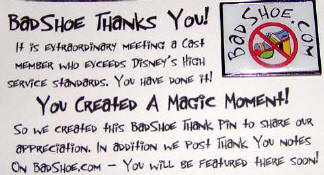 BadShoe Thanks You!
BADSHOE.COM
It is extraordinary meeting a Cast
member who exceeds Disney's high
service standards. You have done it!
You Created A Magic Moment!
So we created this BadShoe Thank Pin to share our
appreciation. In addition we Post Thank You notes
On BadShoe.com - You will be featured there soon!